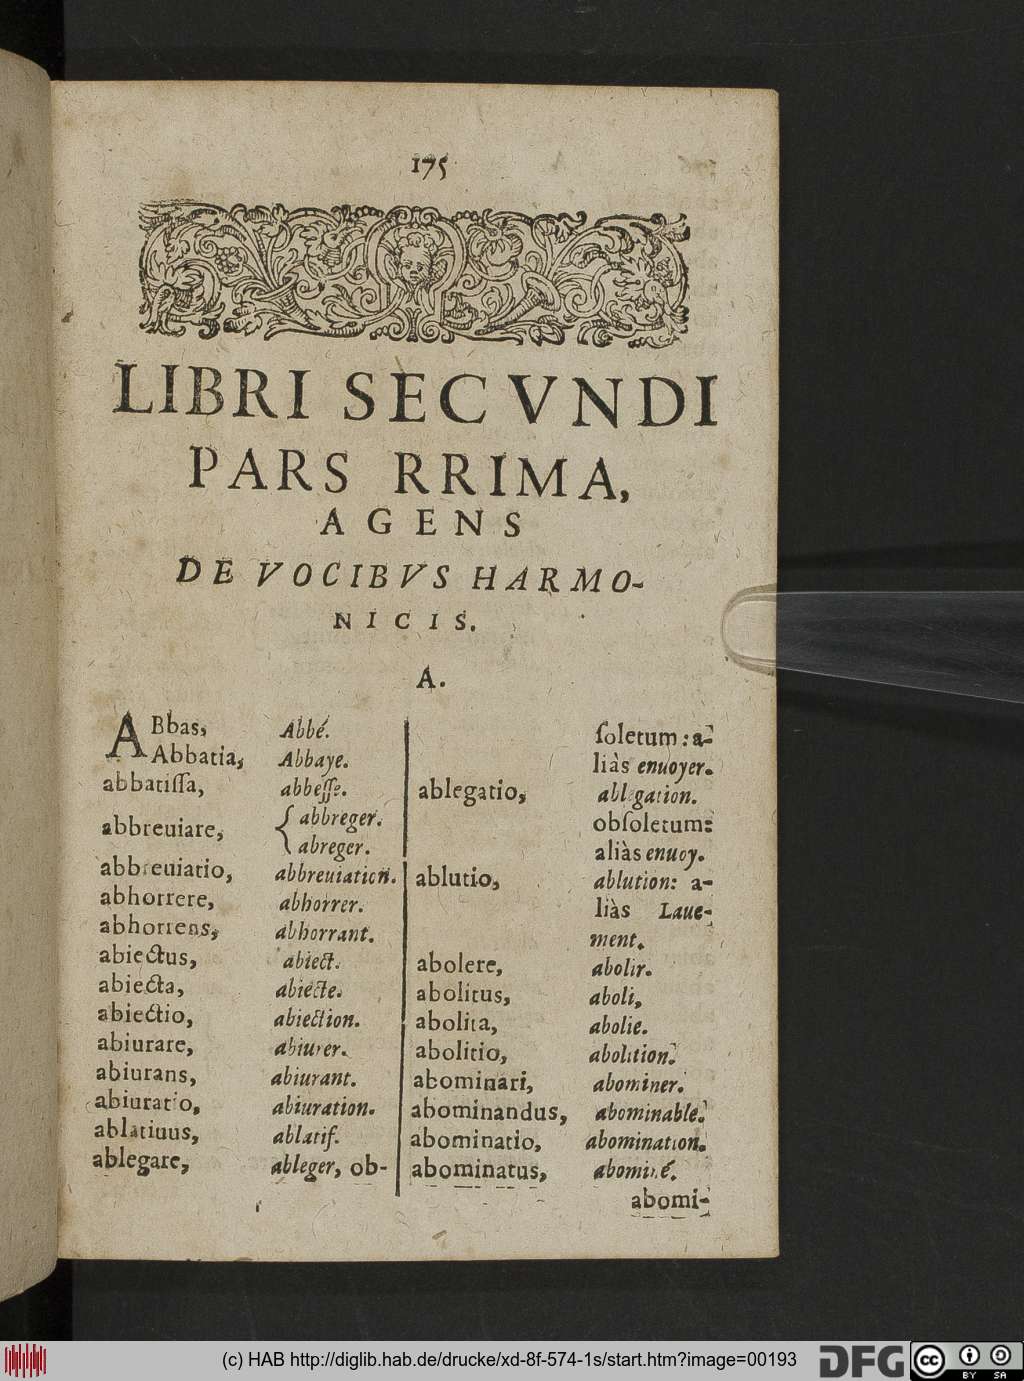 175
LIBRI SECVNDI
PARS RRIMA,
AGENS
DE VOCIBVS HARMO-
NICIS.
A.
ABbas, Abbé.
Abbatia, Abbaye.
abbatiſſa, abbeſſe.
abbreuiare, { abbreger.
abreger.
abbreuiatio, abbreuiation.
abhorrere, abhorrer.
abhorrens, abhorrant.
abiectus, abiect.
abiecta, abiecte.
abiectio, abiection.
abiurare, abiurer.
abiurans, abiurant.
abiuratio, abiuration.
ablatiuus, ablatif.
ablegare, ableger, ob-
ſoletum: a-
liàs enuoyer.
ablegatio, ablegation.
obſoletum:
aliàs enuoy.
ablutio, ablution: a-
liàs Laue-
ment.
abolere, abolir.
abolitus, aboli,
abolita, abolie.
abolitio, abolition.
abominari, abominer.
abominandus, abominable.
abominatio, abomination.
abominatus, abominé.
abomi-
(c) HAB http://diglib.hab.de/drucke/xd-8f-574-1s/start.htm?image=00193
DFG
cc
BY SA